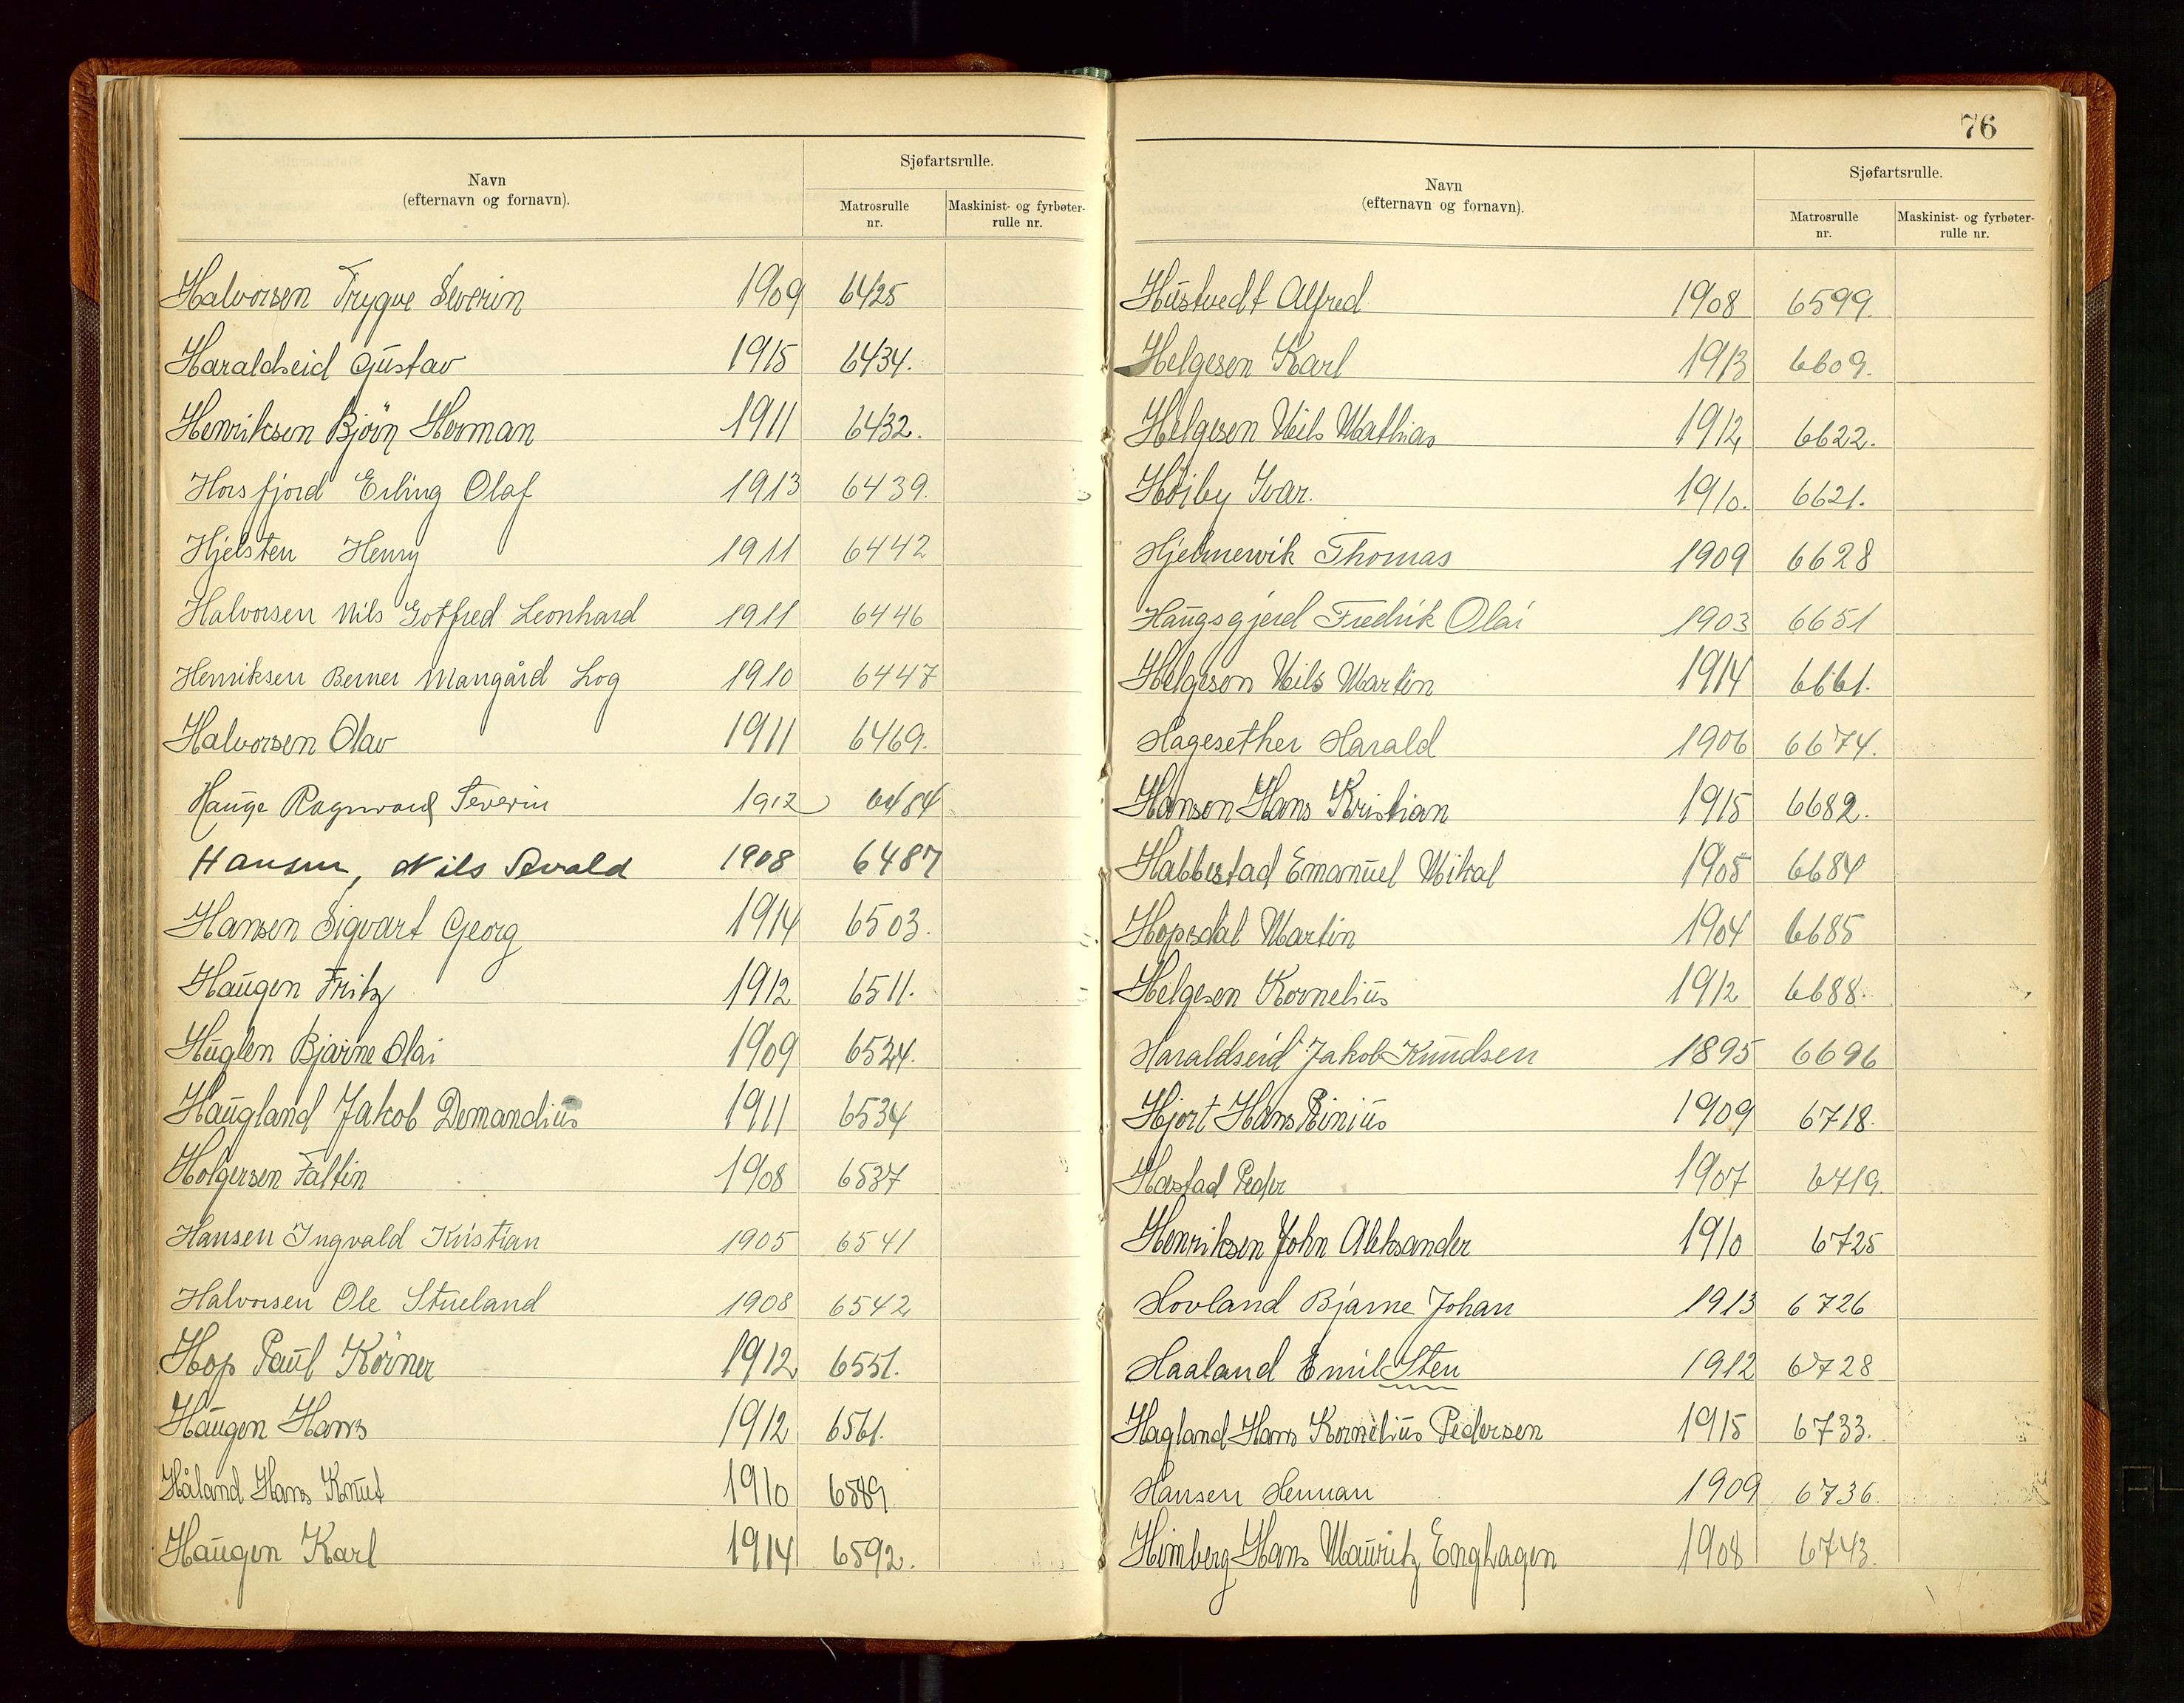 Navn
(efternavn og fornavn).
Sjøfartsrulle.
Matrosrulle
nr.
Maskinist- og fyrbøter-
rulle nr.
Halvorsen Trygve Severin 1909 6425
Haraldseid Gustav 1915 6434.
Henriksen Bjørn Herman 1911 6432.
Horsfjord Erling Olaf 1913 6439.
Hjelsten Henry 1911 6442
Halvorsen Nils Gotfred Leonhard 1911 6446
Henriksen Berner Mangård Log 1910 6447
Halvorsen Olav 1911 6469.
Hauge Ragnvald Severin 1912 6484
Hansen, Nils Sevald 1908 6487
Hansen Sigvart Georg 1914 6503.
Haugen Fritz 1912 6511.
Huglen Bjarne Olai 1909 6524.
Haugland Jakob Demandius 1911 6534
Holgersen Faltin 1908 6537
Hansen Ingvald Kristian 1905 6541
Halvorsen Ole Stueland 1908 6542
Hop Paul Körner 1912 6551.
Haugen Hans 1912 6561.
Håland Hans Knut 1910 6589
Haugen Karl 1914 6592.
76
Navn
(efternavn og fornavn).
Sjøfartsrulle.
Matrosrulle
nr.
Maskinist- og fyrbøter-
rulle nr.
Hustvedt Alfred 1908 6599.
Helgesen Karl 1913 6609.
Helgesen Nils Mathias 1912 6622.
Høiby Ivar. 1910. 6621.
Hjelmervik Thomas 1909 6628
Haugsgjerd Fredrik Olai 1903 6651
Helgeson Nils Martin 1914 6661.
Hagesether Harald 1906 6674.
Hanson Hans Kristian 1915 6682.
Habbestad Emanuel Mikal 1905 6684
Hopsdal Martin 1904 6685
Helgesen Kornelius 1912 6688.
Haraldseid Jakob Knudsen 1895 6696
Hjort Hans Rinius 1909 6718.
Hæstad Peder 1907 6719.
Henriksen John Aleksander 1910 6725
Hovland Bjarne Johan 1913 6726
Haaland Emil Sten 1912 6728
Hagland Hans Kornelius Pedersen 1915 6733.
Hansen Herman 1909 6736.
Himberg Hans Mauritz Enghagen 1908 6743.